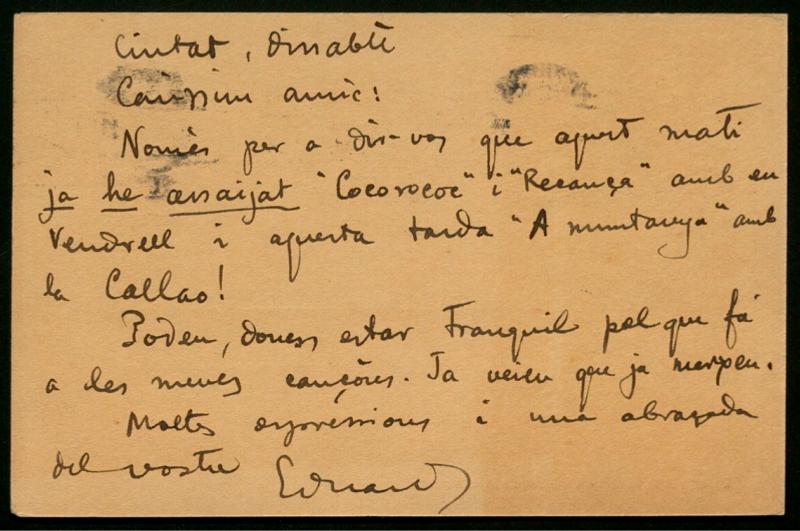 Ciutat, dissabte
Caríssim amic:
Només per a dir-vos que aquest matí
ja he assaijat "Cocorococ" i "Recança" amb en
Vendrell i aquesta tarda "A muntanya" amb
la Callao!
Podeu, doncs estar tranquil pel que fá
a les meves cançóns. Ja veieu que ja
Moltes expréssions i una abraçada
del vostre Eduard